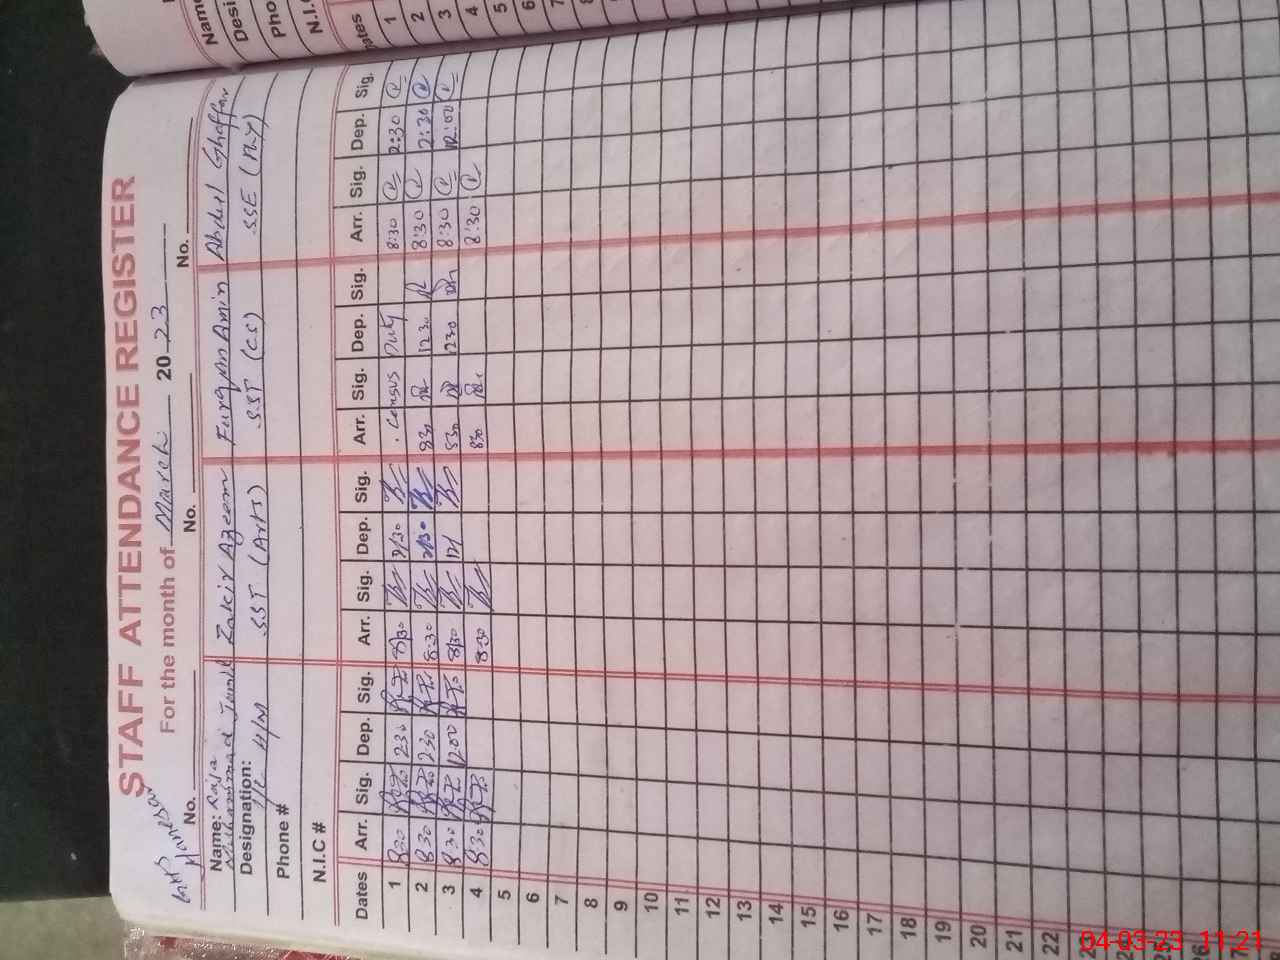 STAFF ATTENDANCE REGISTER
For the month of March 2023
No. No. No. No.
Name: Raja Muhammad Jamil Zakir Azeem Furqan Amin Abdul Ghaffar
Designation: I/C H/M SST (Arts) SST (CS) SSE
Phone #
N.I.C #
Dates Arr. Sig. Dep. Sig. Arr. Sig. Dep. Sig. Arr. Sig. Dep. Sig. Arr. Sig. Dep. Sig.
1 830 230 8/30 2/30 Census Duty 8:30 2:30
2 830 230 8:30 2/30 830 1230 8:30 2:30
3 830 1200 8/30 12/ 830 1230 8:30 12:00
4 830 8:30 830 8:30
5
6
7
8
9
10
11
12
13
14
15
16
17
18
19
20
21
22
Name
Desi
Pho
N.I.C
Dates
1
2
3
4
5
6
7
04-03-23 11:21